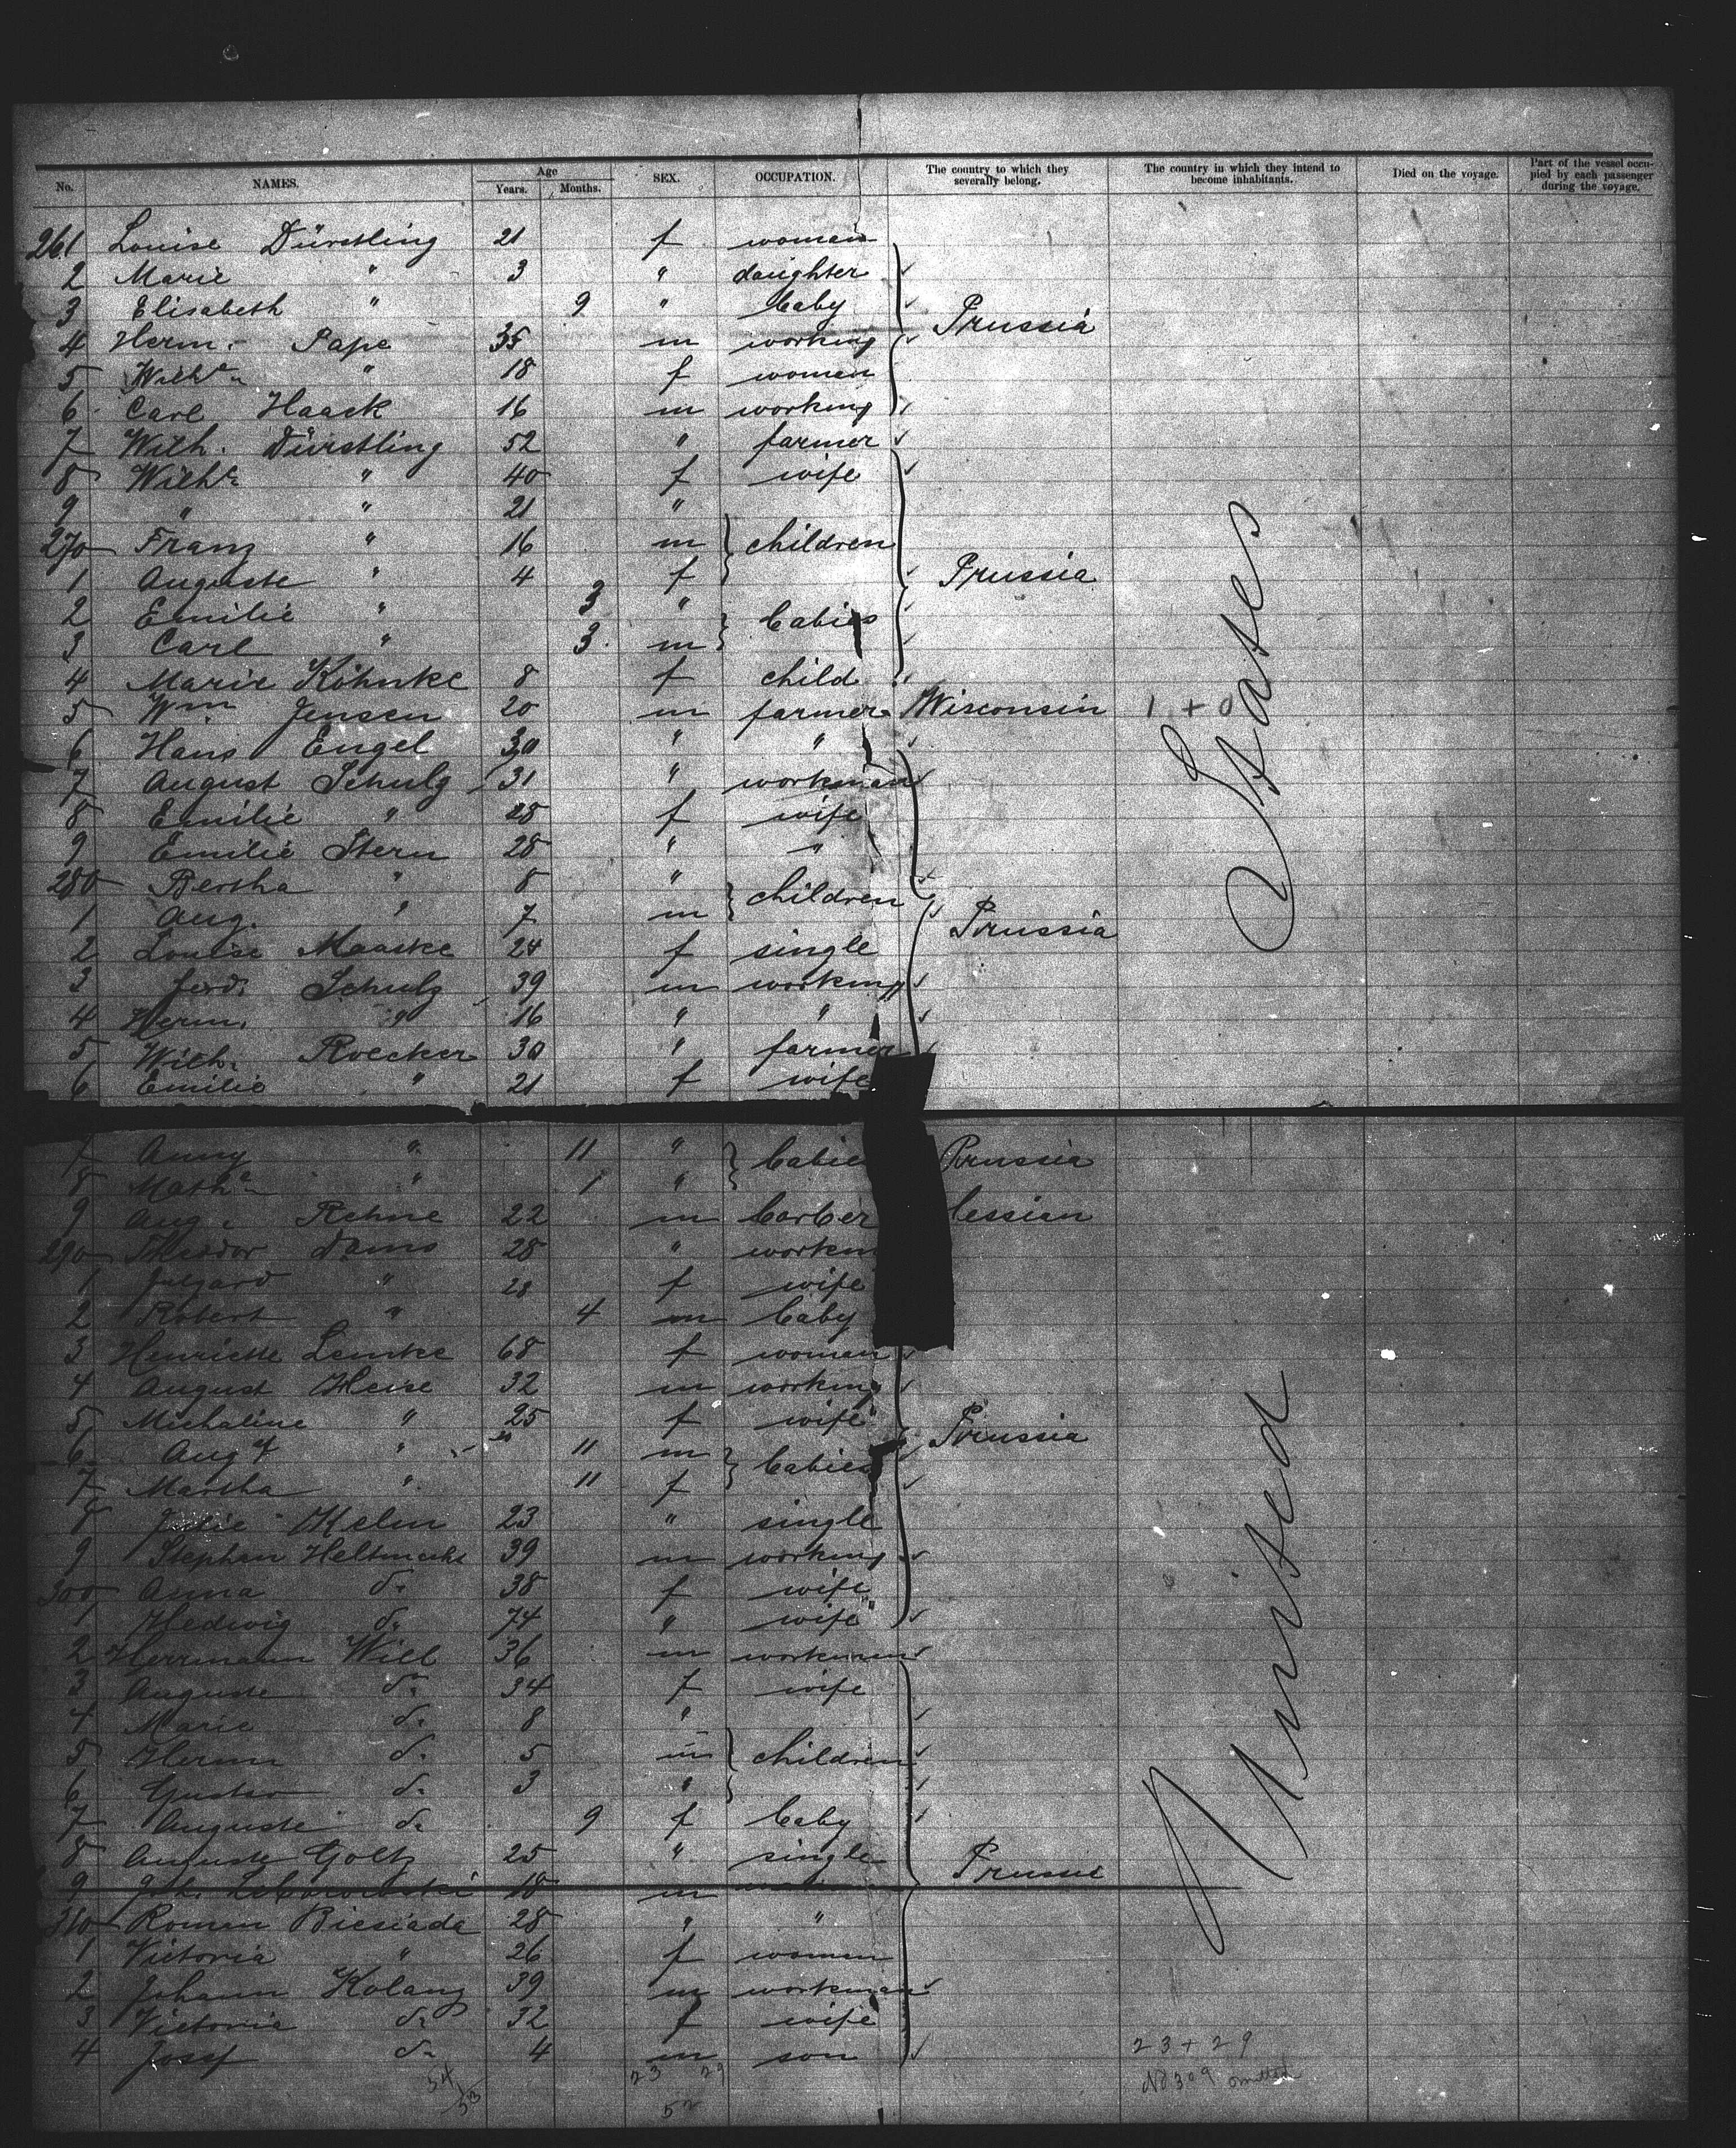 No. NAMES. Age Years. Months. SEX. OCCUPATION. The country to which they severally belong. The country in which they intend to become inhabitants. Died on the voyage. Part of the vessel occupied by each passenger during the voyage.
261 Louise Dürstling 21 f woman
2 Marie " 3 " daughter
3 Elisabeth " 9 " baby Prussia
4 Herm. Pape 35 m working
5 Wilhe " 18 f women
6 Carl Haack 16 m working
7 Wilh. Dürstling 52 " farmer
8 Wilhe " 40 f wife
9 " " 21 "
270 Franz " 16 m children
1 Auguste " 4 f Prussia
2 Emilie " 3 " babies
3 Carl " 3 m
4 Marie Köhnke 8 f child
5 Wm Jensen 20 m farmer Wisconsin 1 + 0
6 Hans Engel 30 " "
7 August Schulz 31 " workman
8 Emilie " 28 f wife
9 Emilie Stern 28 " "
280 Bertha " 8 " children
1 Aug. " 7 m Prussia
2 Louise Maaske 24 f single
3 ferd. Schulz 39 m working
4 Herm. " 16 " "
5 Wilh. Roecker 30 " farmer
6 Emilie " 21 f wife
7 Anny " 11 " babie Prussia
8 Mathe " 1 "
9 Aug. Rehne 22 m barber lessian
290 Theodor Dams 28 " workm
1 " 28 f wife
2 Robert " 4 m baby
3 Henriette Lemke 68 f woman
4 August Heise 32 m working
5 Michaline " 25 f wife Prussia
6 Aug " 11 m babies
7 Martha " 11 f
8 Julie Kelm 23 " single
9 Stephan 39 m working
300 Anna do 38 f wife
1 Hedwig do 74 " wife
2 Herrmann Will 36 m workman
3 Auguste do 34 f wife
4 Marie do 8 "
5 Herm do 5 m children
6 Gustav do 3 "
7 Auguste do 9 f baby
8 Auguste Goltz 25 " single Prussia
9 Joh. 18 m
310 Roman Biesiada 28 " "
1 Victoria " 26 f women
2 Johann Kolanz 39 m workman
3 Victoria do 32 f wife
4 Josef do 4 m son
United States
23 + 29
No 309 omitted
54
53
23 29
52